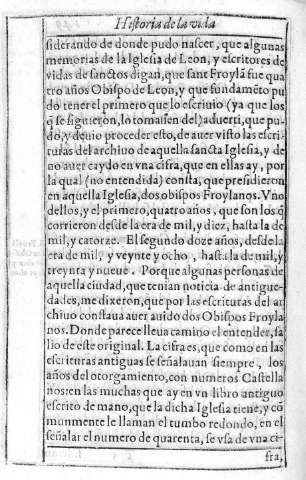 Historia de la vida
siderando de donde pudo nascer, que algunas
memorias de la Iglesia de Leon, y escritores de
vidas de sanctos digan, que sant Froylã fue qua
tro años Obispo de Leon, y que fundamẽto pu
do tener el primero que lo escriuio (ya que los
q̃ se siguieron, lo tomaisen del) aduerti, que pu-
do, y deuio proceder esto, de auer visto las escri-
turas del archiuo de aquella sancta Iglesia, y de
no auer caydo en vna cifra, que en ellas ay, por
la qual (no entendida) consta, que presidieron
en aquella Iglesia, dos obispos Froylanos. Vno
dellos, y el primero, quatro años, que son los q̃
corrieron desde la era de mil, y diez, hasta la de
mil, y catorze. El segundo doze años, desde la
era de mil, y veynte y ocho, hasta la de mil, y
treynta y nueue. Porque algunas personas de
aquella ciudad, que tenian noticia de antigue-
dades, me dixeron, que por las escrituras del ar
chiuo constaua auer auido dos Obispos Froyla
nos. Donde parece lleua camino el entender, sa
lio de este original. La cifra es, que como en las
escrituras antiguas se señalauan siempre, los
años del otorgamiento, con numeros Castella
nos: en las muchas que ay en vn libro antiguo
escrito de mano, que la dicha Iglesia tiene, y cõ
munmente le llaman el tumbo redondo, en el
señalar el numero de quarenta, se vsa de vna ci-
fra,